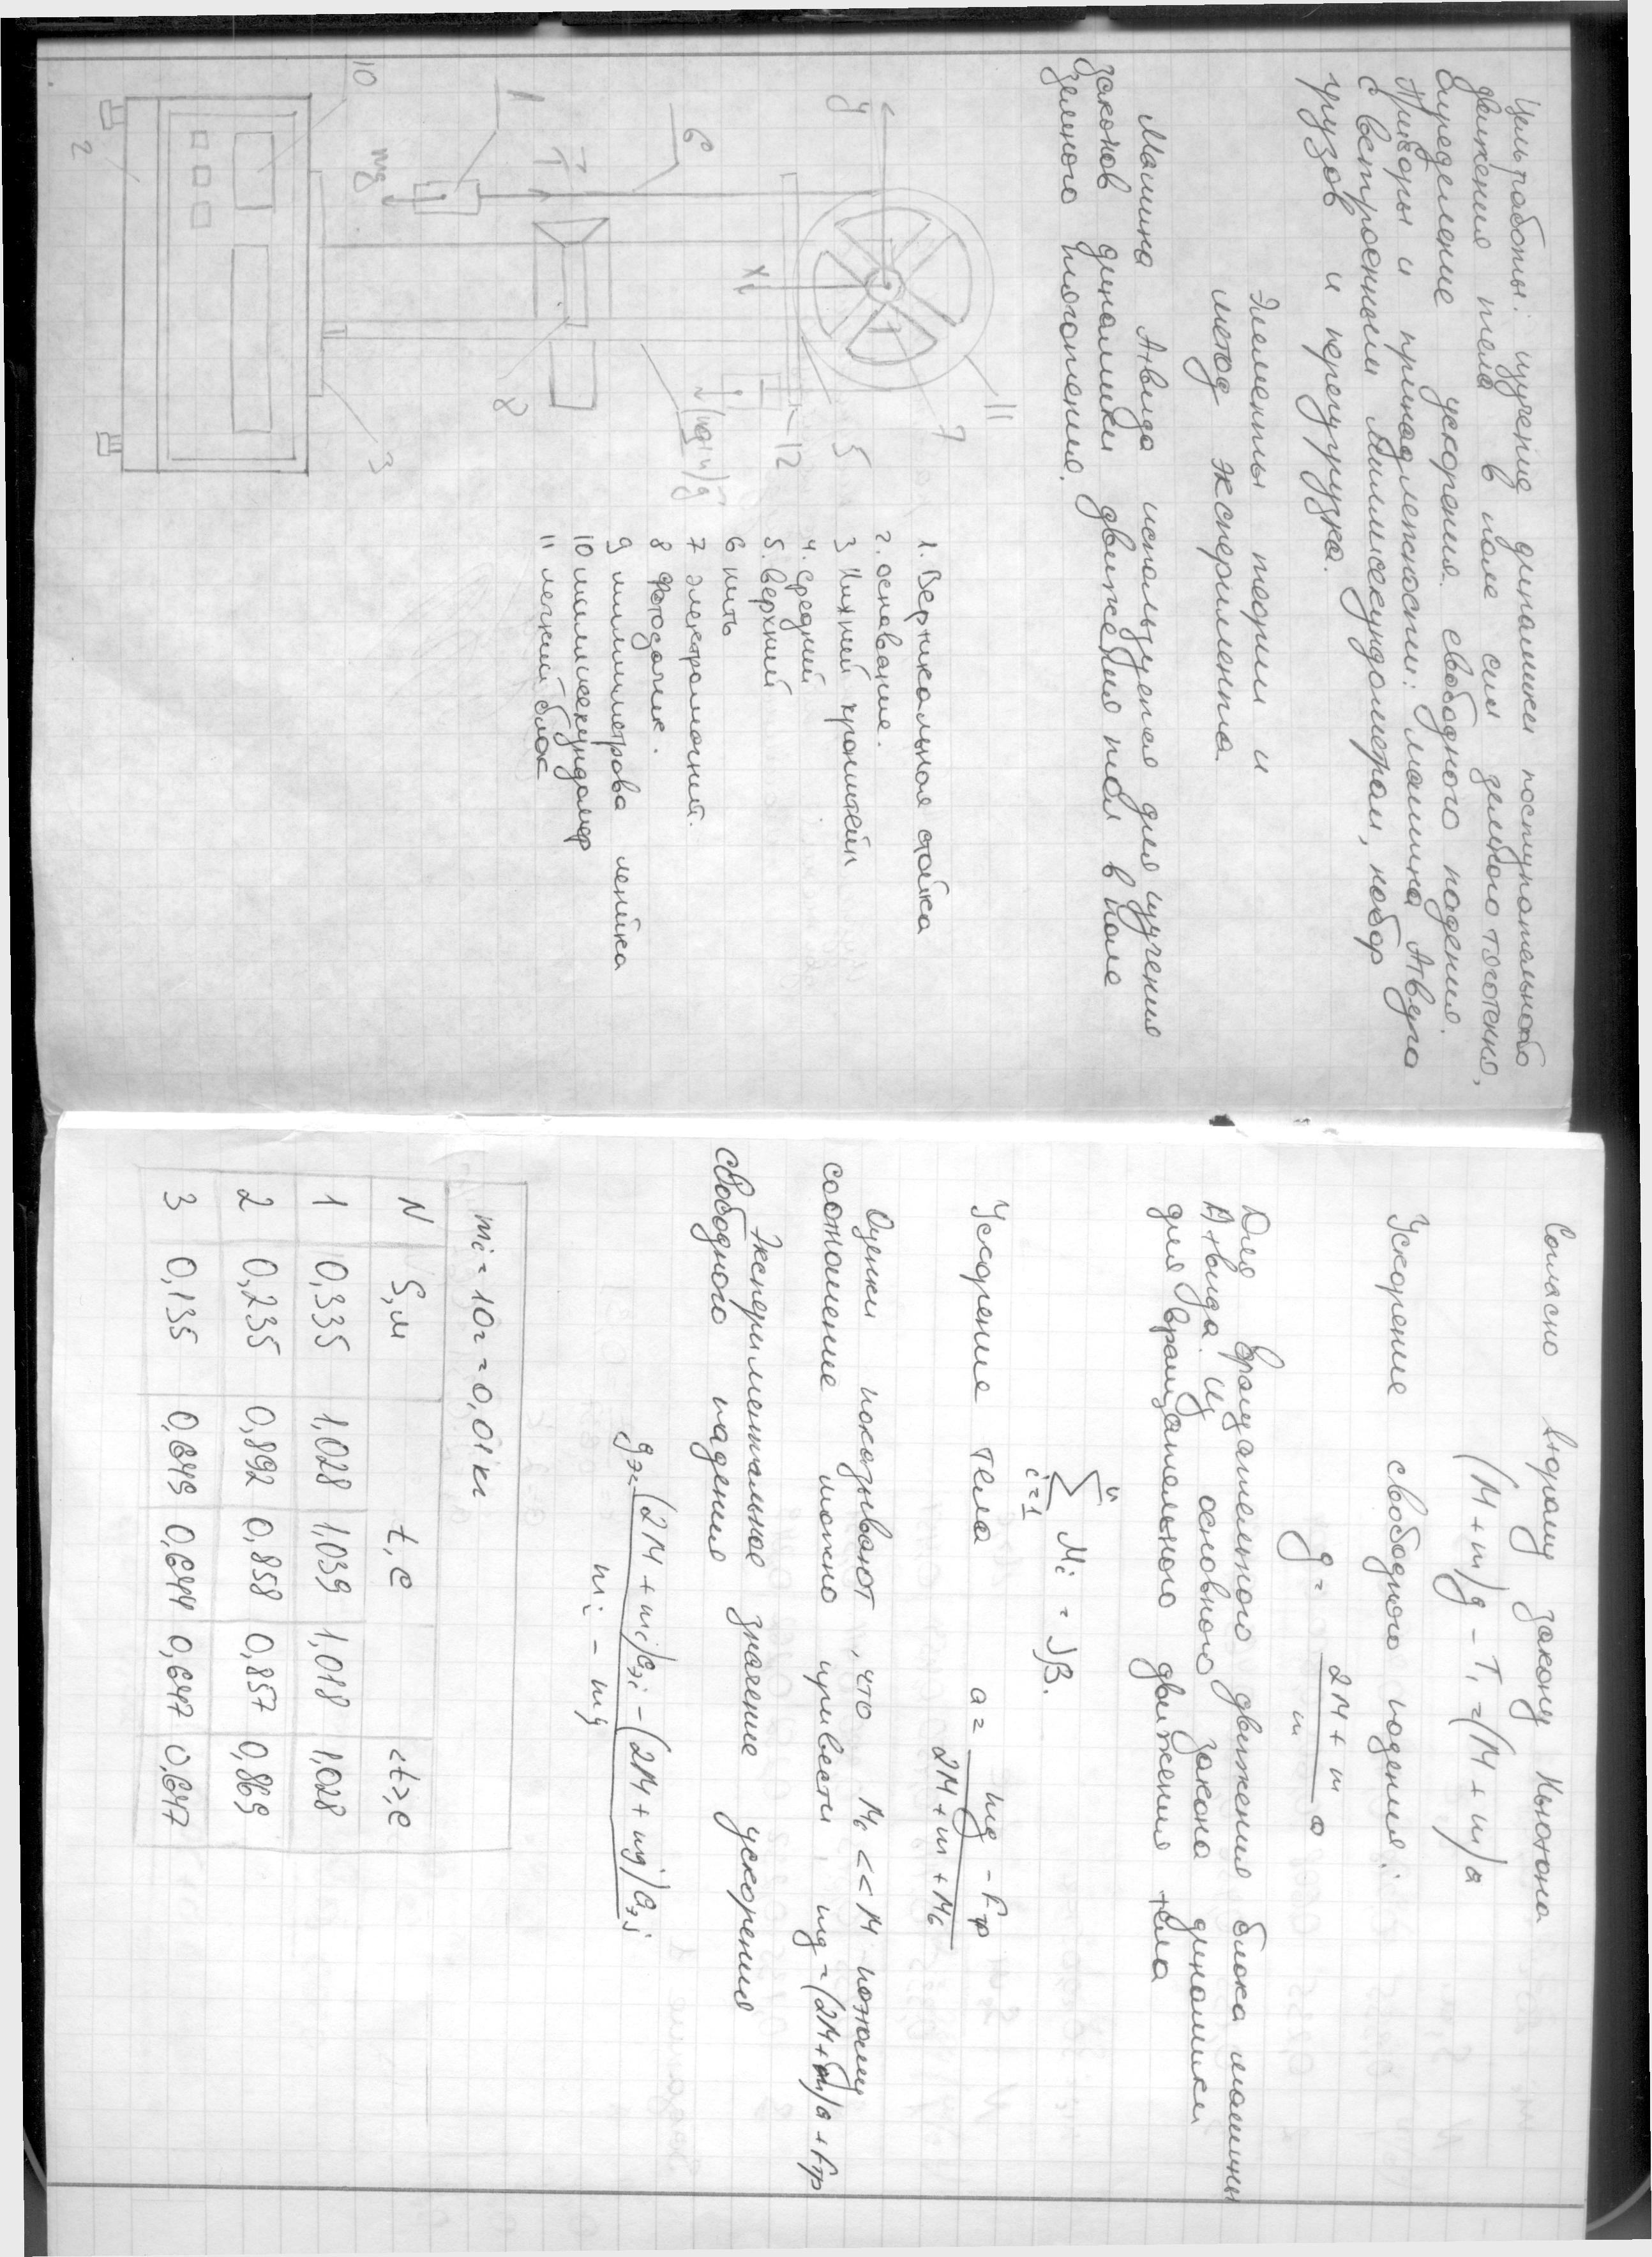 Цель работы: изучение динамики поступательного
движения тела в поле сил земного тяготения,
определение ускорения свободного падения.
Приборы и принадлежности: машина Атвуда
с встроенным миллисекундомером, набор
грузов и перегрузка.
Элементы теории и
метод эксперимента
Машина Атвуда используется для изучения
законов динамики движения тел в поле
земного тяготения.
11
7
5
12
y
x
6
T
8
(M+m)g
1
mg
10
3
2
1. Вертикальная стойка
2. основание.
3 Нижний кронштейн
4. средний
5. верхний
6 нить
7 электромагнит.
8 фотодатчик.
9 миллиметрова линейка
10 миллисекундомер
11 легкий блок
Согласно второму закону Ньютона
(M+m)g - T₁ = (M+m)a
Ускорение свободного падения:
g = (2M+m)/m a
Для вращательного движения блока машины
Атвуда из основного закона динамики
для вращательного движения тела
n
∑ Mi = Jβ.
i=1
Ускорение тела a = (mg - Fтр)/(2M+m+M₆)
Оценки показывают, что M₆ << M поэтому
соотношение можно привести mg = (2M+m)a + Fтр
Экспериментальное значение ускорения
свободного падения
gэ = ((2M+mi)aэi - (2M+mj)aэj)/(mi - mj)
mi = 10г = 0,01кг
N S,м t,с <t>,с
1 0,335 1,028 1,039 1,018 1,028
2 0,235 0,892 0,858 0,857 0,869
3 0,135 0,649 0,644 0,647 0,647